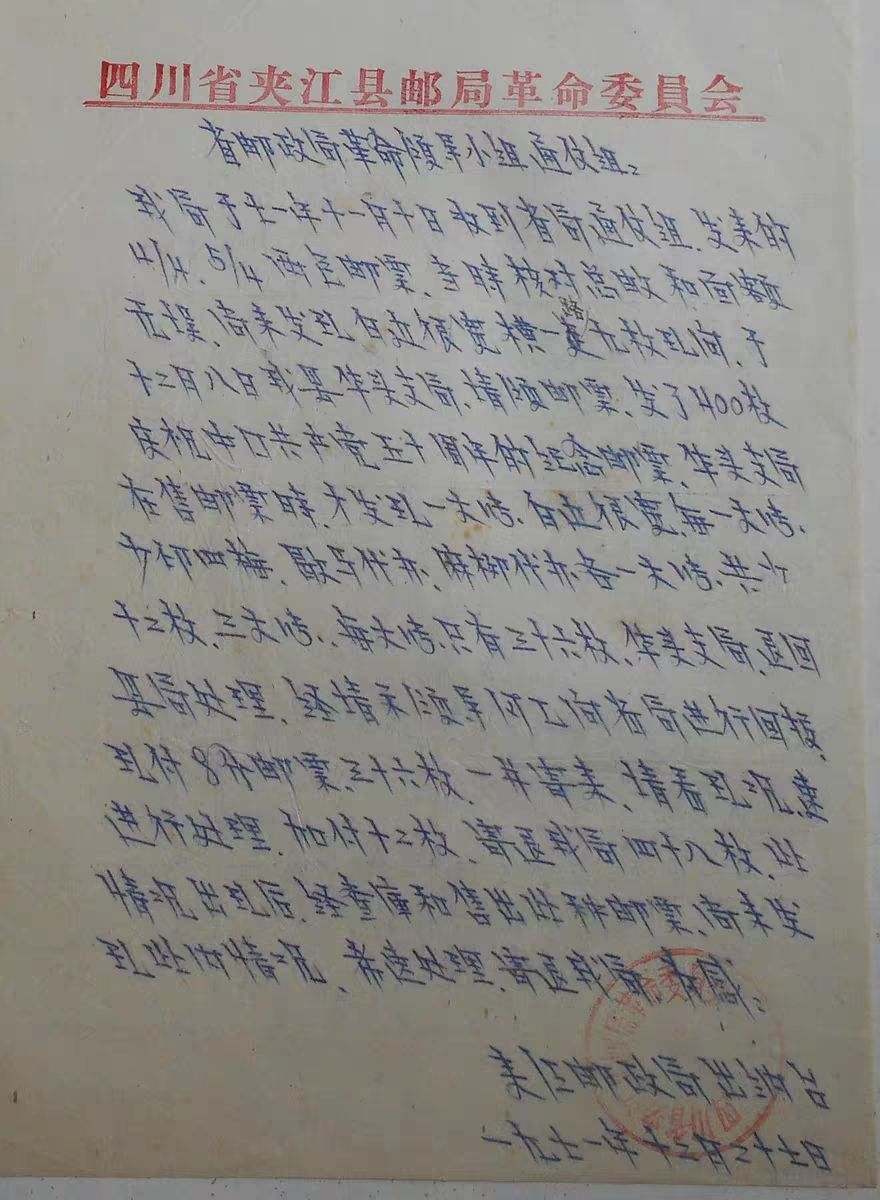 四川省夹江县邮局革命委員会
省邮政局革命领导小组通信组：
我局于七一年十一月十日收到省局通信组、发来的
4/4、5/4 两包邮票、当时核对总数和面额
无误、尚未发现 白边很宽横一路无枚孔间、于
十二月八日我县华头支局、请领邮票、发了400枚
庆祝中国共产党五十周年的纪念邮票、华头支局
在售邮票时、才发现一大张、白边很宽、每一大张、
少印四枚、
十二枚、三大张、每大张、只有三十六枚、华头支局、退回
县局处理、经请示领导同意向省局进行回报、
现付8分邮票、三十六枚、一并寄来、请看现况、速
进行处理、加付十二枚、寄退我局四十八枚、此
情况出现后、经查库和售出此种邮票、尚未发
现此的情况、希速处理、寄退我局、为感。
夹江邮政局出纳台
一九七一年十二月二十七日